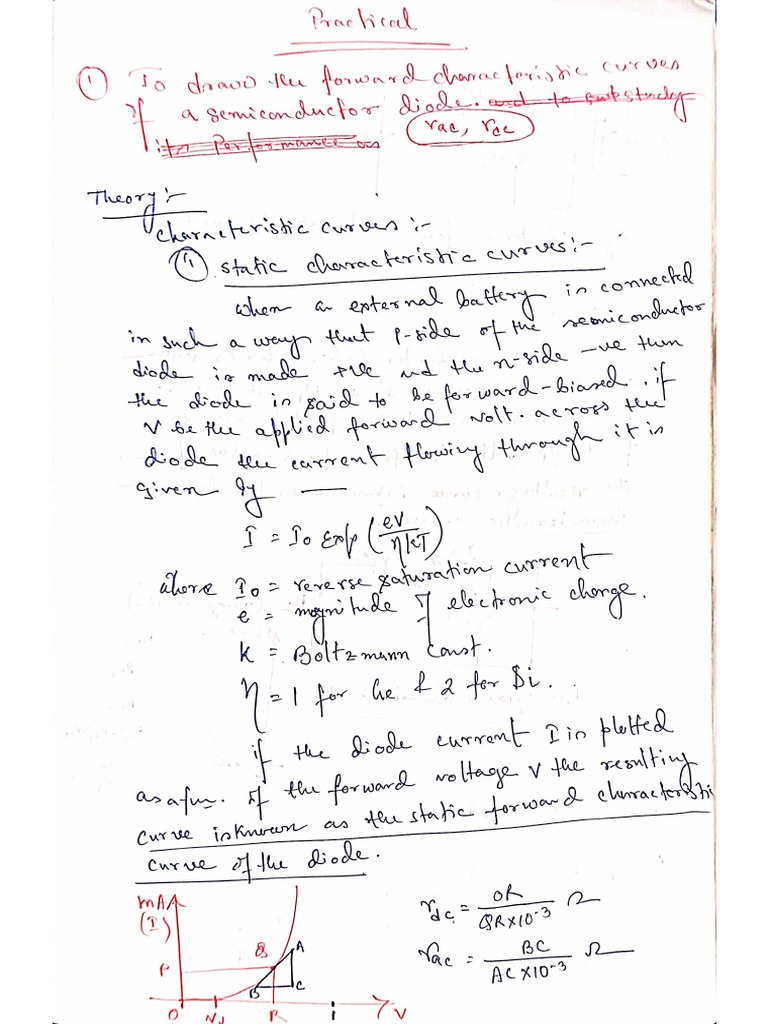 Practical
① To draw the forward characteristic curves
of a semiconductor diode. and to sub study
its Performance as rac, rdc
Theory :-
characteristic curves :-
① static characteristic curves :-
when a external battery is connected
in such a way that P-side of the semiconductor
diode is made +ve and the n-side -ve then
the diode is said to be forward-biased. if
V be the applied forward volt. across the
diode the current flowing through it is
given by —
I = I₀ exp (eV/ηkT)
where I₀ = reverse saturation current
e = magnitude of electronic charge.
k = Boltzmann const.
η = 1 for Ge & 2 for Si.
if the diode current I is plotted
as a fun. of the forward voltage V the resulting
curve is known as the static forward characteristic
curve of the diode.
mA
(I)
P
Q
A
B
C
O
R
i
V
rdc = OR/QR×10⁻³ Ω
rac = BC/AC×10⁻³ Ω